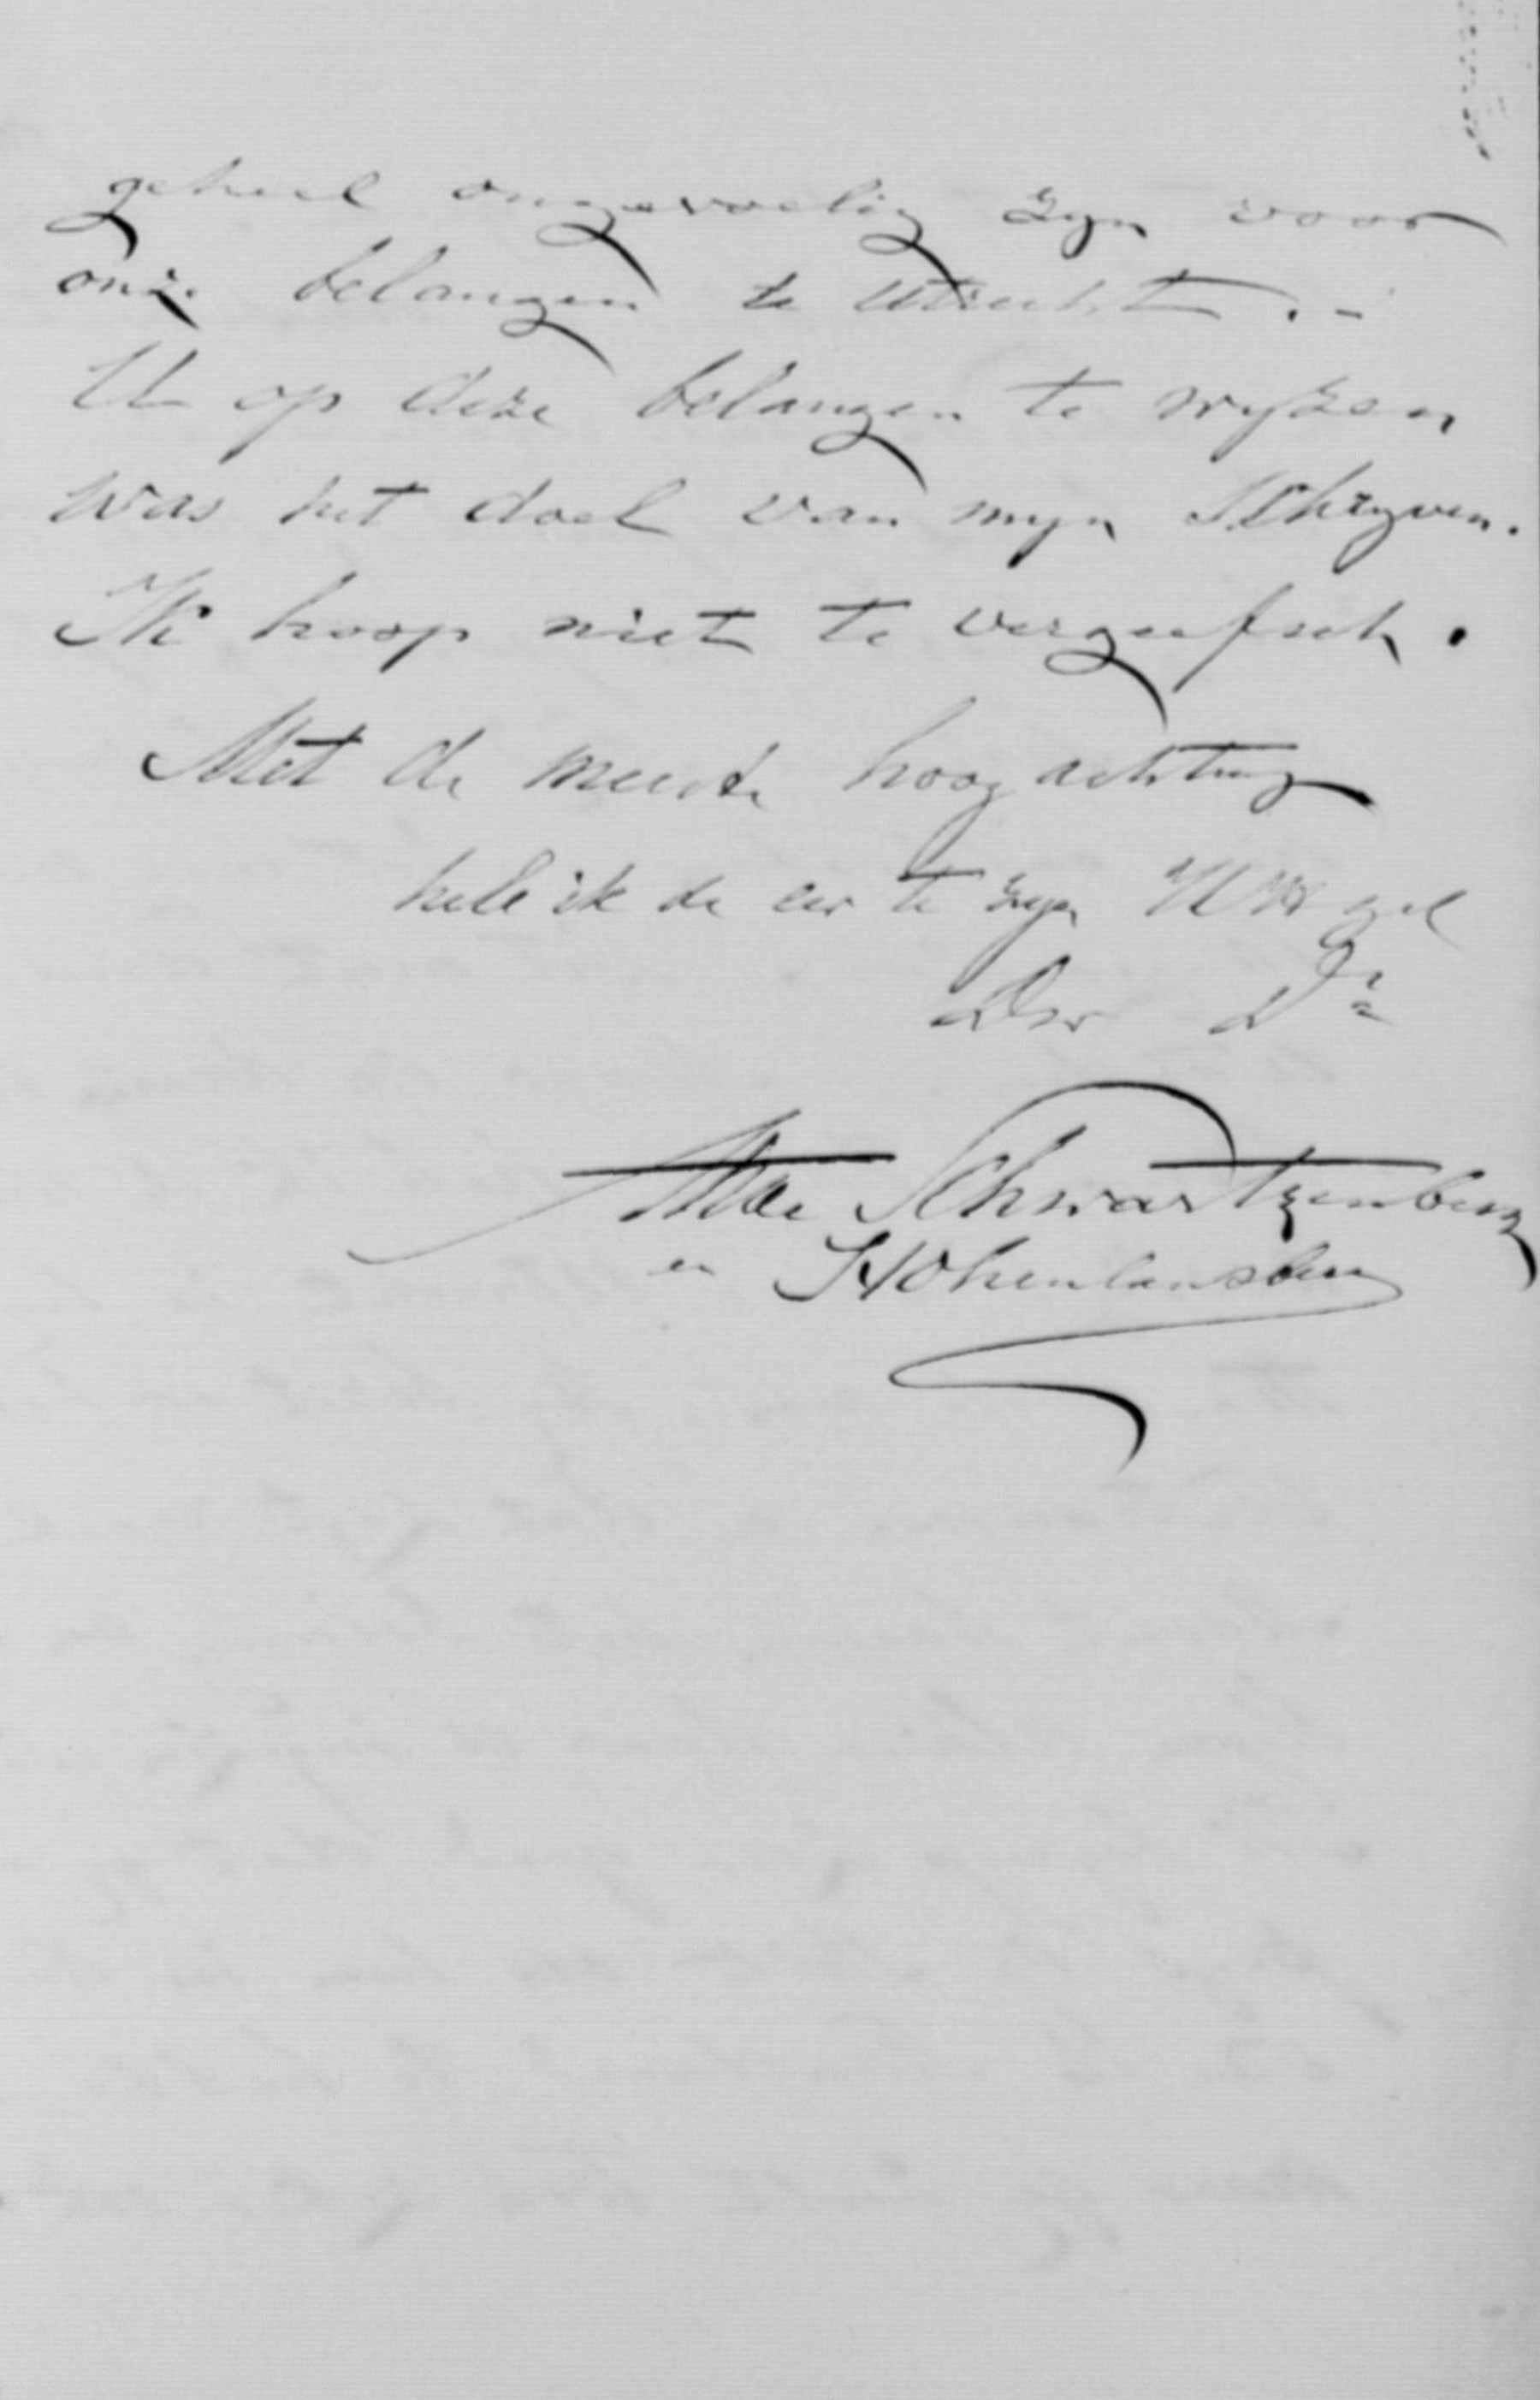 geheel ongevoelig zyn voor
onze belangen te Utrecht. -
U op deze belangen te wyzen
was het doel van myn Schryven.
Ik hoop niet te vergeefsch.
Met de meeste hoogachting
heb ik de eer te zyn UW
Dw Dr
Schwartzenberg
en Hohenlansberg